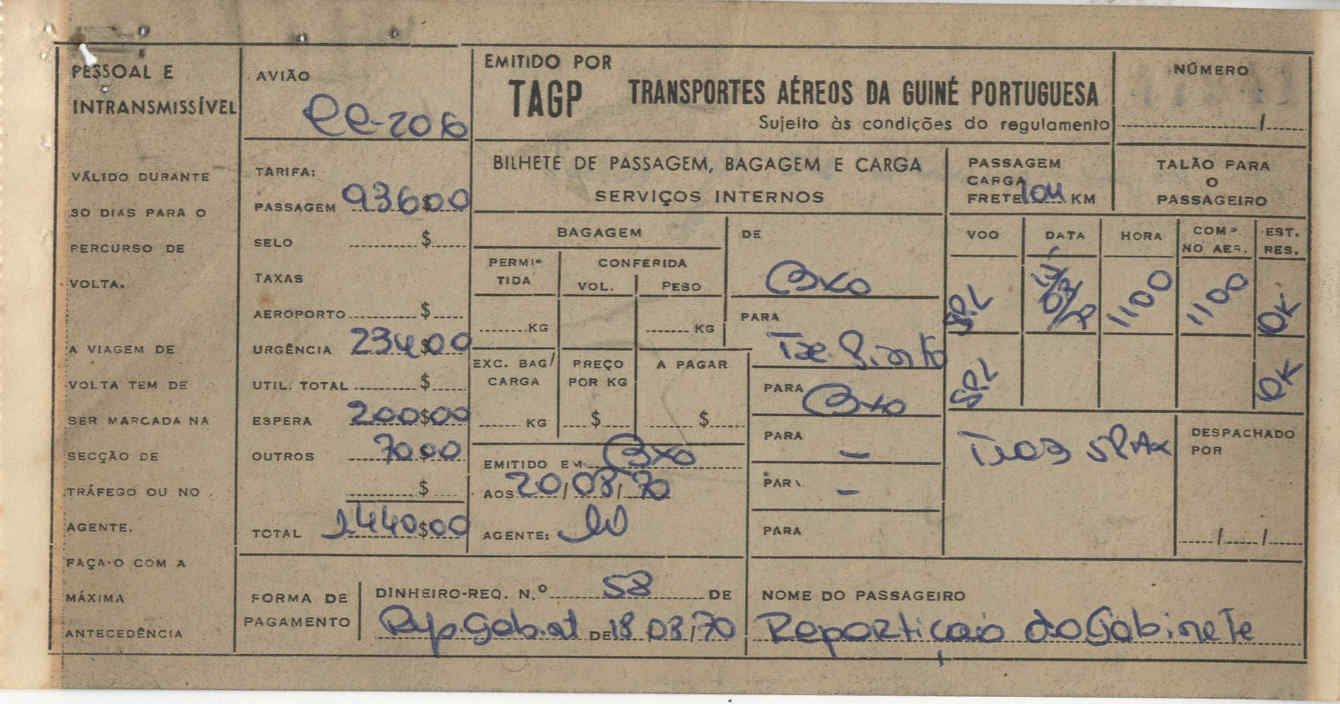 PESSOAL E
INTRANSMISSÍVEL
VÁLIDO DURANTE
30 DIAS PARA O
PERCURSO DE
VOLTA.
A VIAGEM DE
VOLTA TEM DE
SER MARCADA NA
SECÇÃO DE
TRÁFEGO OU NO
AGENTE.
FAÇA-O COM A
MÁXIMA
ANTECEDÊNCIA
AVIÃO
TARIFA:
PASSAGEM 936$00
SELO $
TAXAS
AEROPORTO $
URGÊNCIA 234$00
UTIL. TOTAL $
ESPERA 200$00
OUTROS 70 00
$
TOTAL 1.440$00
EMITIDO POR
TAGP TRANSPORTES AÉREOS DA GUINÉ PORTUGUESA
Sujeito às condições do regulamento
NÚMERO
/
BILHETE DE PASSAGEM, BAGAGEM E CARGA
SERVIÇOS INTERNOS
PASSAGEM
CARGA
FRETE 104 KM
TALÃO PARA
O
PASSAGEIRO
BAGAGEM
PERMI-
TIDA
CONFERIDA
VOL. PESO
KG KG
EXC. BAG/
CARGA
PREÇO
POR KG
A PAGAR
KG $ $
EMITIDO EM Bxo
AOS 20/08/70
AGENTE:
DE
Bxo
PARA
PARA
Bxo
PARA
-
PARA
-
PARA
VOO DATA HORA COMP. NO AER. EST. RES.
SPL 1100 1100 OK
SPL OK
DESPACHADO
POR
/ /
FORMA DE
PAGAMENTO
DINHEIRO-REQ. N.º 58 DE
DE 18 08/70
NOME DO PASSAGEIRO
Repartição do Gabinete